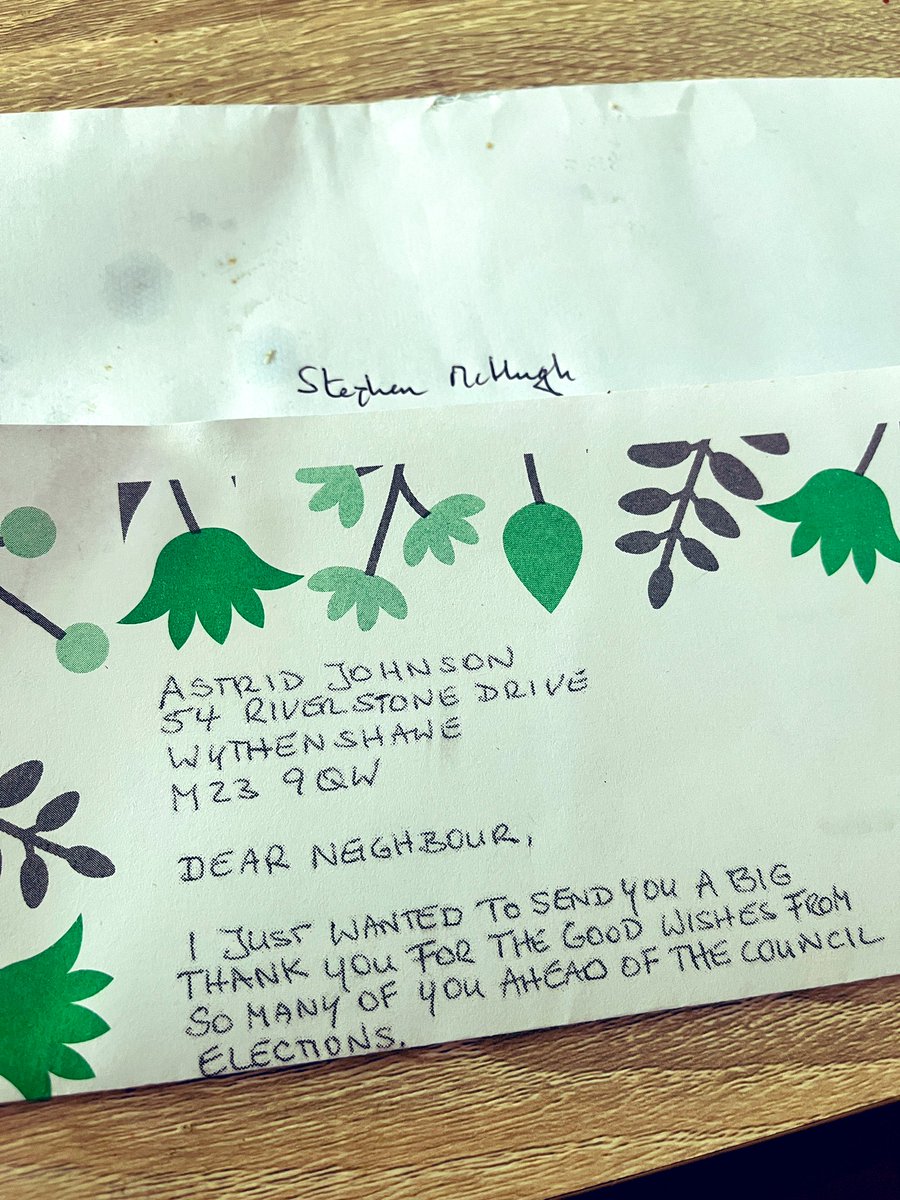 Stephen McHugh
ASTRID JOHNSON
54 RIVERSTONE DRIVE
WYTHENSHAWE
M23 9QW
DEAR NEIGHBOUR,
I JUST WANTED TO SEND YOU A BIG
THANK YOU FOR THE GOOD WISHES FROM
SO MANY OF YOU AHEAD OF THE COUNCIL
ELECTIONS.